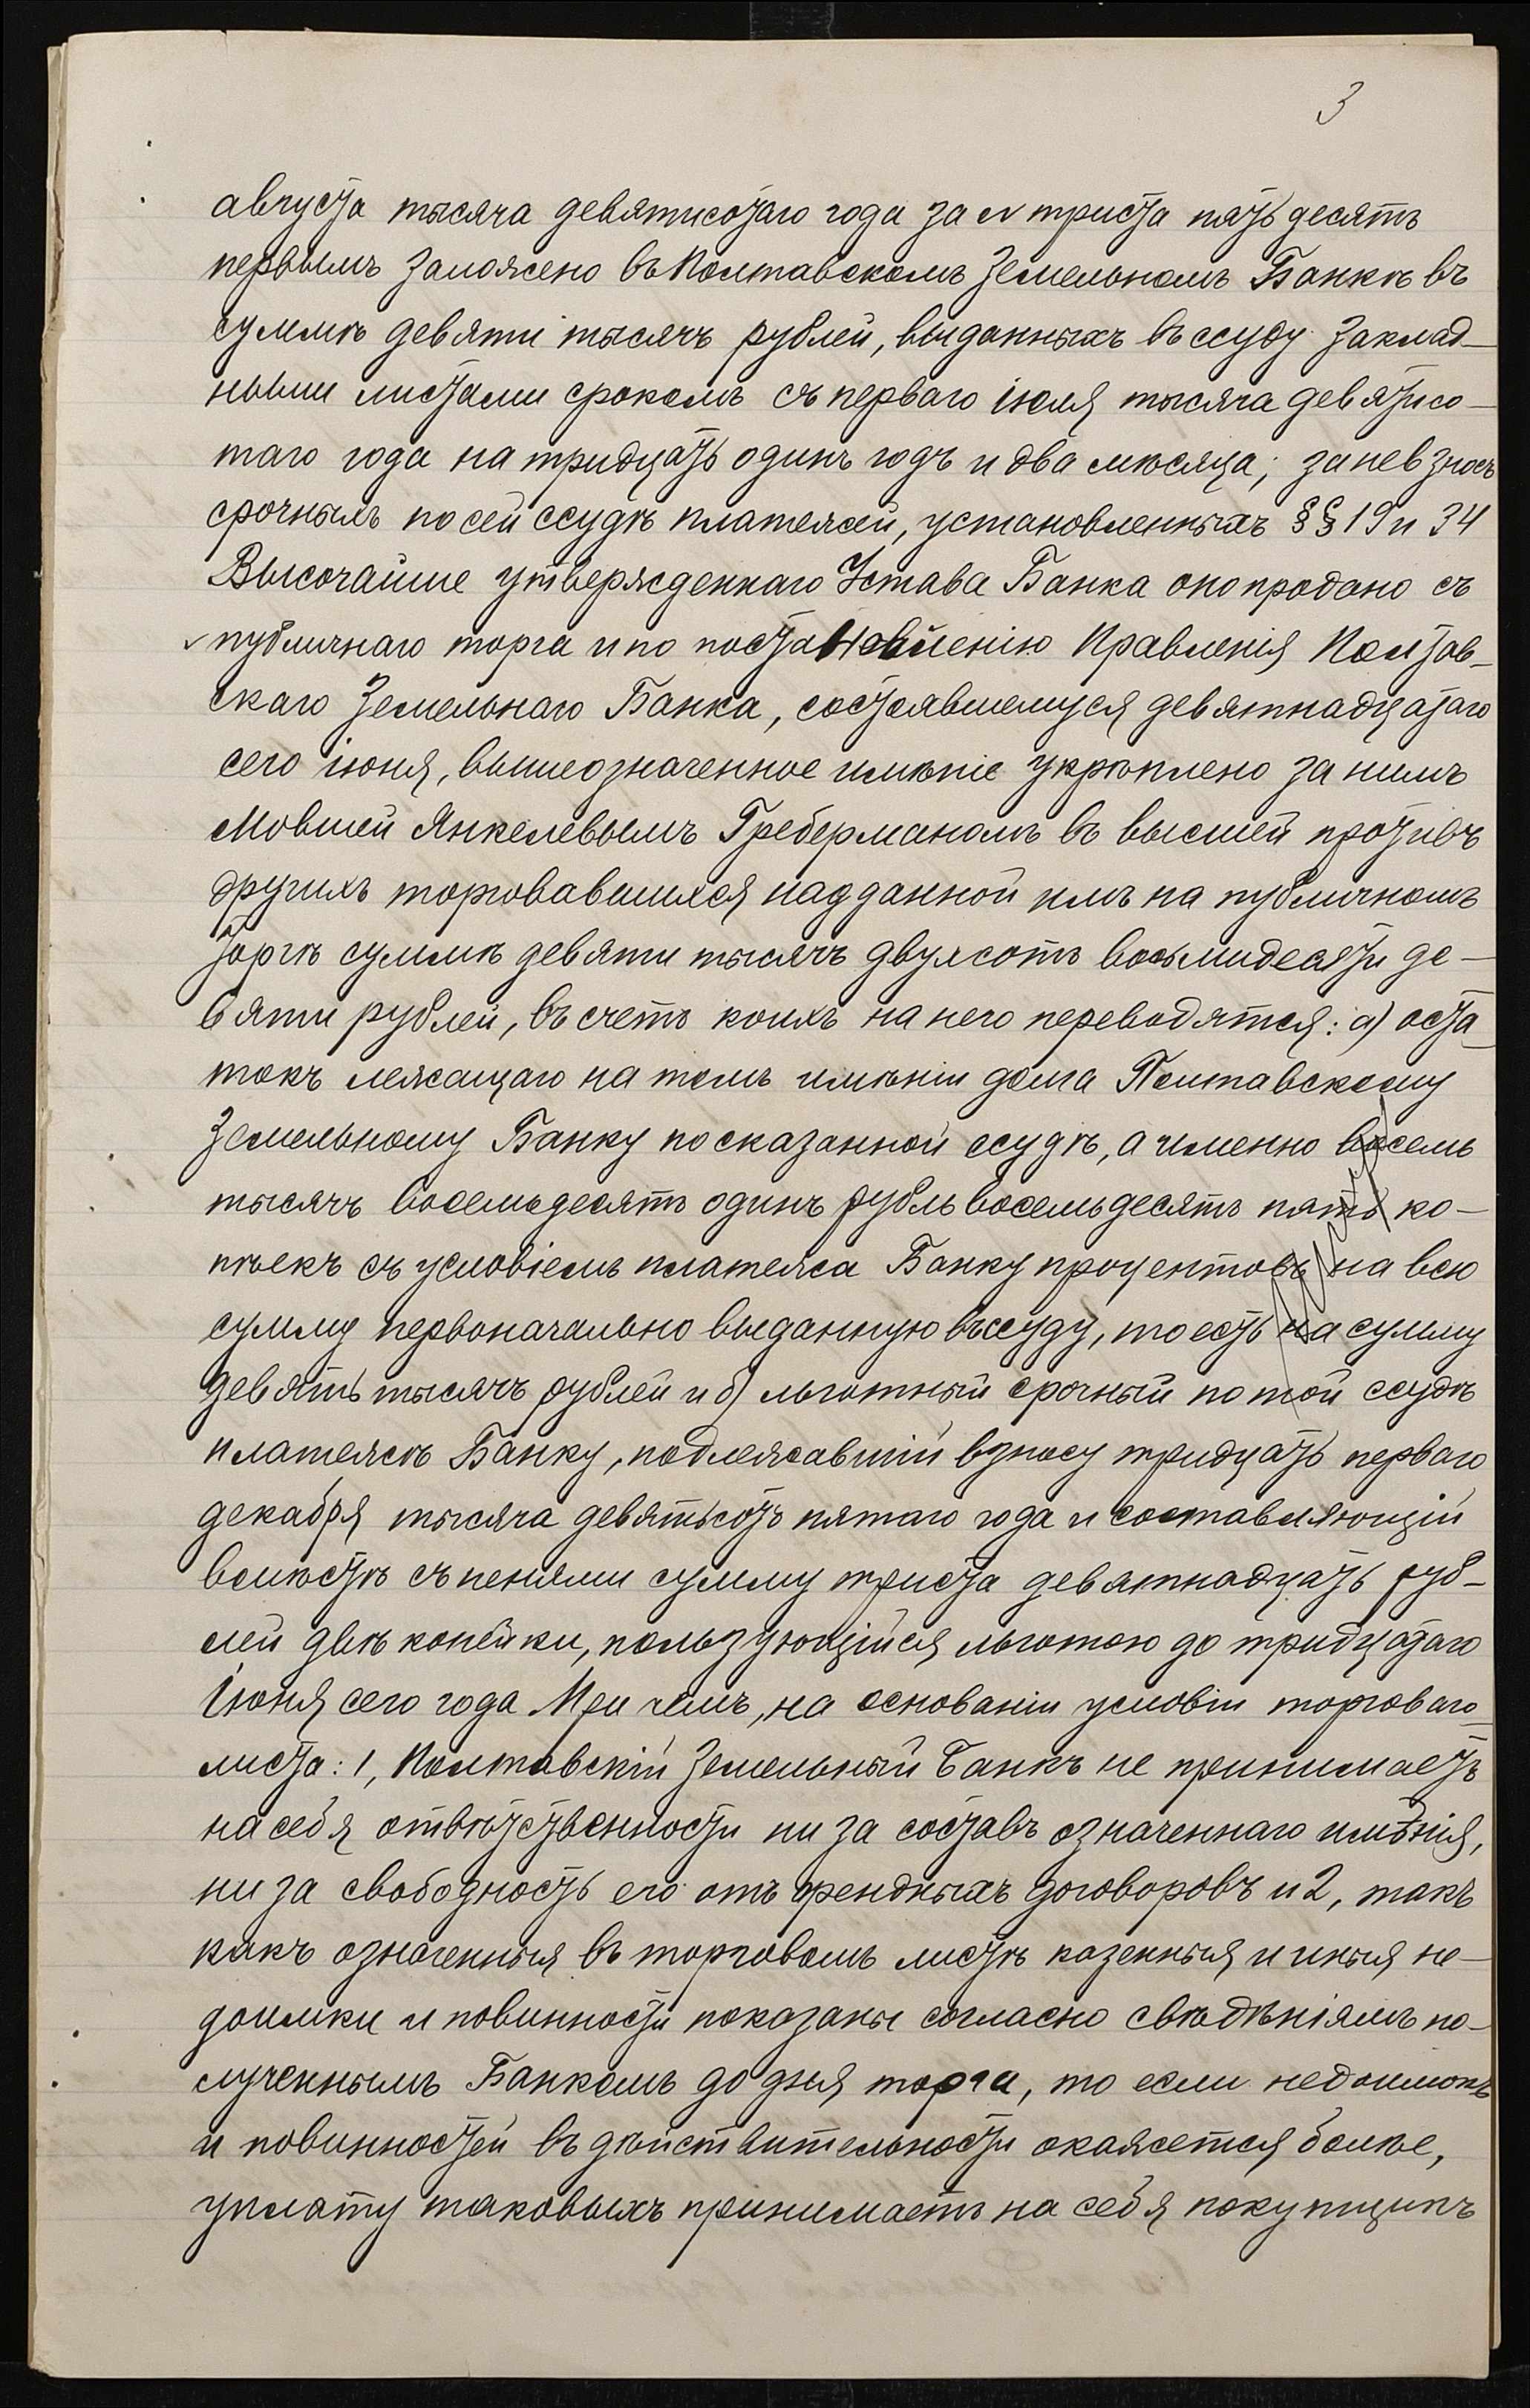 3
августа тысяча девятисотаго года за № триста пятьдесятъ
первымъ заложено въ Полтавскомъ Земельномъ Банкѣ въ
суммѣ девяти тысячъ рублей, выданныхъ въ ссуду заклад-
ными листами срокомъ съ перваго іюля тысяча девятисо-
таго года на тридцать одинъ годъ и два мѣсяца; за невзносъ
срочныхъ по сей ссудѣ платежей, установленныхъ §§ 19 и 34
Высочайше утвержденнаго Устава Банка оно продано съ
публичнаго торга и по постановленію Правленія Полтав-
скаго Земельнаго Банка, состоявшемуся девятнадцатаго
сего іюня, вышеозначенное имѣніе укрѣплено за нимъ
Мовшей Янкелевымъ Греберманомъ въ высшей противъ
другихъ торговавшихся надданной имъ на публичномъ
торгѣ суммѣ девяти тысячъ двухсотъ восьмидесяти де-
вяти рублей, въ счетъ коихъ на него переводятся: а) оста-
токъ лежащаго на томъ имѣніи долга Полтавскому
Земельному Банку по сказанной ссудѣ, а именно восемь
тысячъ восемьдесятъ одинъ рубль восемьдесятъ пять ко-
пѣекъ съ условіемъ платежа Банку процентовъ на всю
сумму первоначально выданную въ ссуду, то есть на сумму
девять тысячъ рублей и б) льготный срочный по той ссудѣ
платежъ Банку, подлежавшій взносу тридцать перваго
декабря тысяча девятьсотъ пятаго года и составляющій
вмѣстѣ съ пенями сумму триста девятнадцать руб-
лей двѣ копѣйки, пользующійся льготою до тридцатаго
Іюня сего года При чемъ, на основаніи условій торговаго
листа: 1, Полтавскій Земельный Банкъ не принимаетъ
на себя отвѣтственности ни за составъ означеннаго имѣнія,
ни за свободность его отъ арендныхъ договоровъ и 2, такъ
какъ означенныя въ торговомъ листѣ казенныя и иныя не-
доимки и повинности показаны согласно свѣдѣніямъ по-
лученнымъ Банкомъ до дня торга, то если недоимокъ
и повинностей въ дѣйствительности окажется болѣе,
уплату таковыхъ принимаетъ на себя покупщикъ